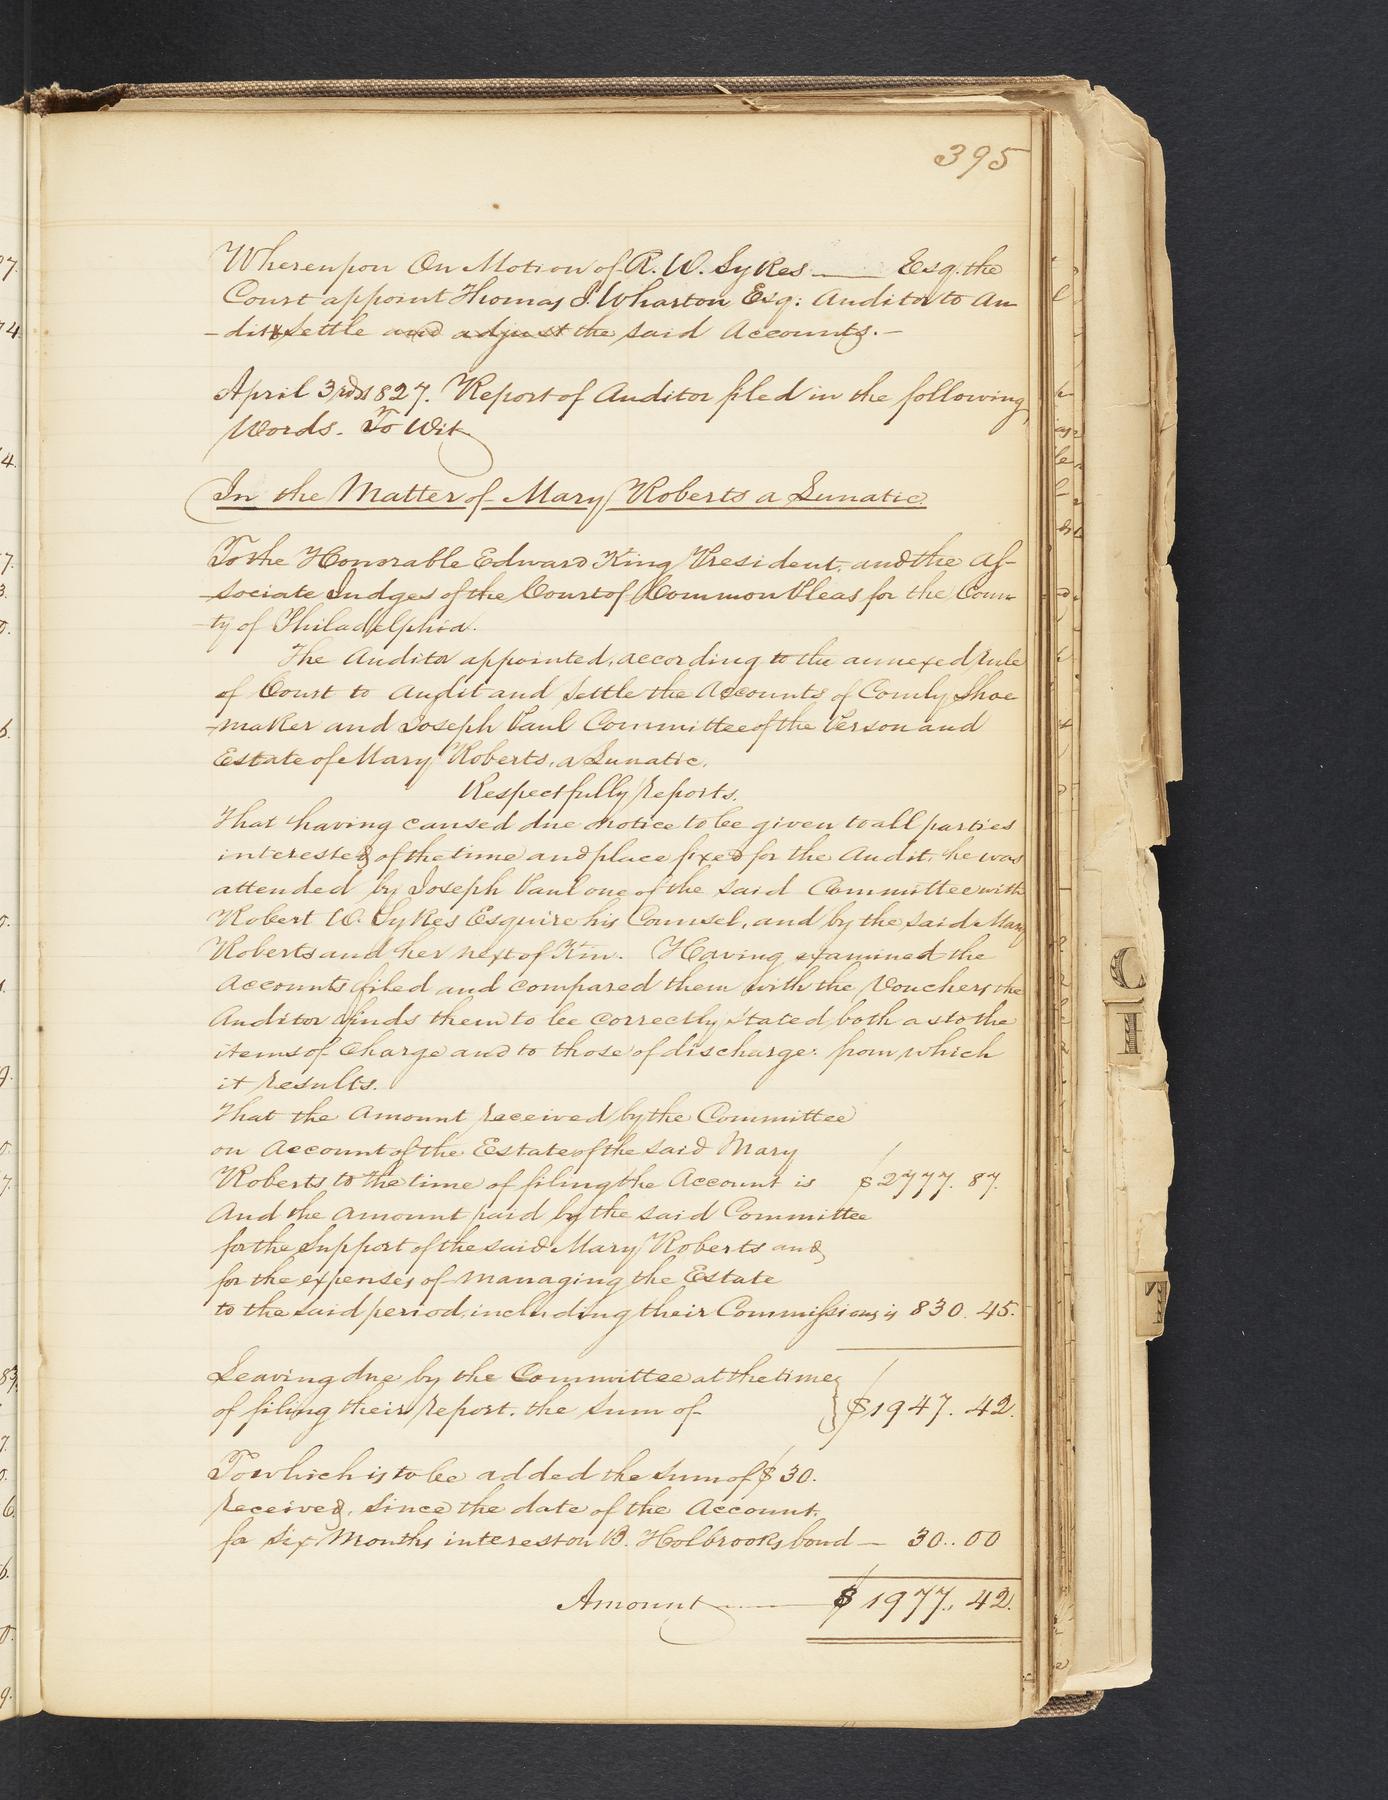 395
Whereupon On Motion of R. W. Sykes —— Esq. the
Court appoint Thomas I. Wharton Esq: Auditor to Au-
-dit & settle and adjust the said Accounts.—
April 3rd 1827. Report of Auditor filed in the following
Words. To Wit
In the Matter of Mary Roberts a Lunatic.
To the Honorable Edward King President, and the As-
-sociate Judges of the Court of Common Pleas for the Coun-
-ty of Philadelphia.
The Auditor appointed, according to the annexed rule
of Court to audit and settle the Accounts of Comly Shoe
-maker and Joseph Paul Committee of the Person and
Estate of Mary Roberts, a Lunatic.
Respectfully reports.
That having caused due notice to be given to all parties
interested of the time and place fixed for the Audit, he was
attended by Joseph Paul one of the said Committee with
Robert W. Sykes Esquire his Counsel, and by the said Mary
Roberts and her next of Kin. Having examined the
Accounts filed and compared them with the Vouchers the
Auditor finds them to be correctly stated both as to the
items of charge and to those of discharge: from which
it results.
That the Amount received by the Committee
on Account of the Estate of the said Mary
Roberts to the time of filing the Account is $2777. 87.
And the amount paid by the said Committee
for the support of the said Mary Roberts and
for the expenses of managing the Estate
to the said period, including their Commissions is 830. 45.
Leaving due by the Committee at the time
of filing their report, the sum of } $1947. 42.
To which is to be added the sum of $30.
received, since the date of the Account.
for six Months interest on B. Holbrooks bond — 30..00
Amount —— $1977., 42.
C
I
T